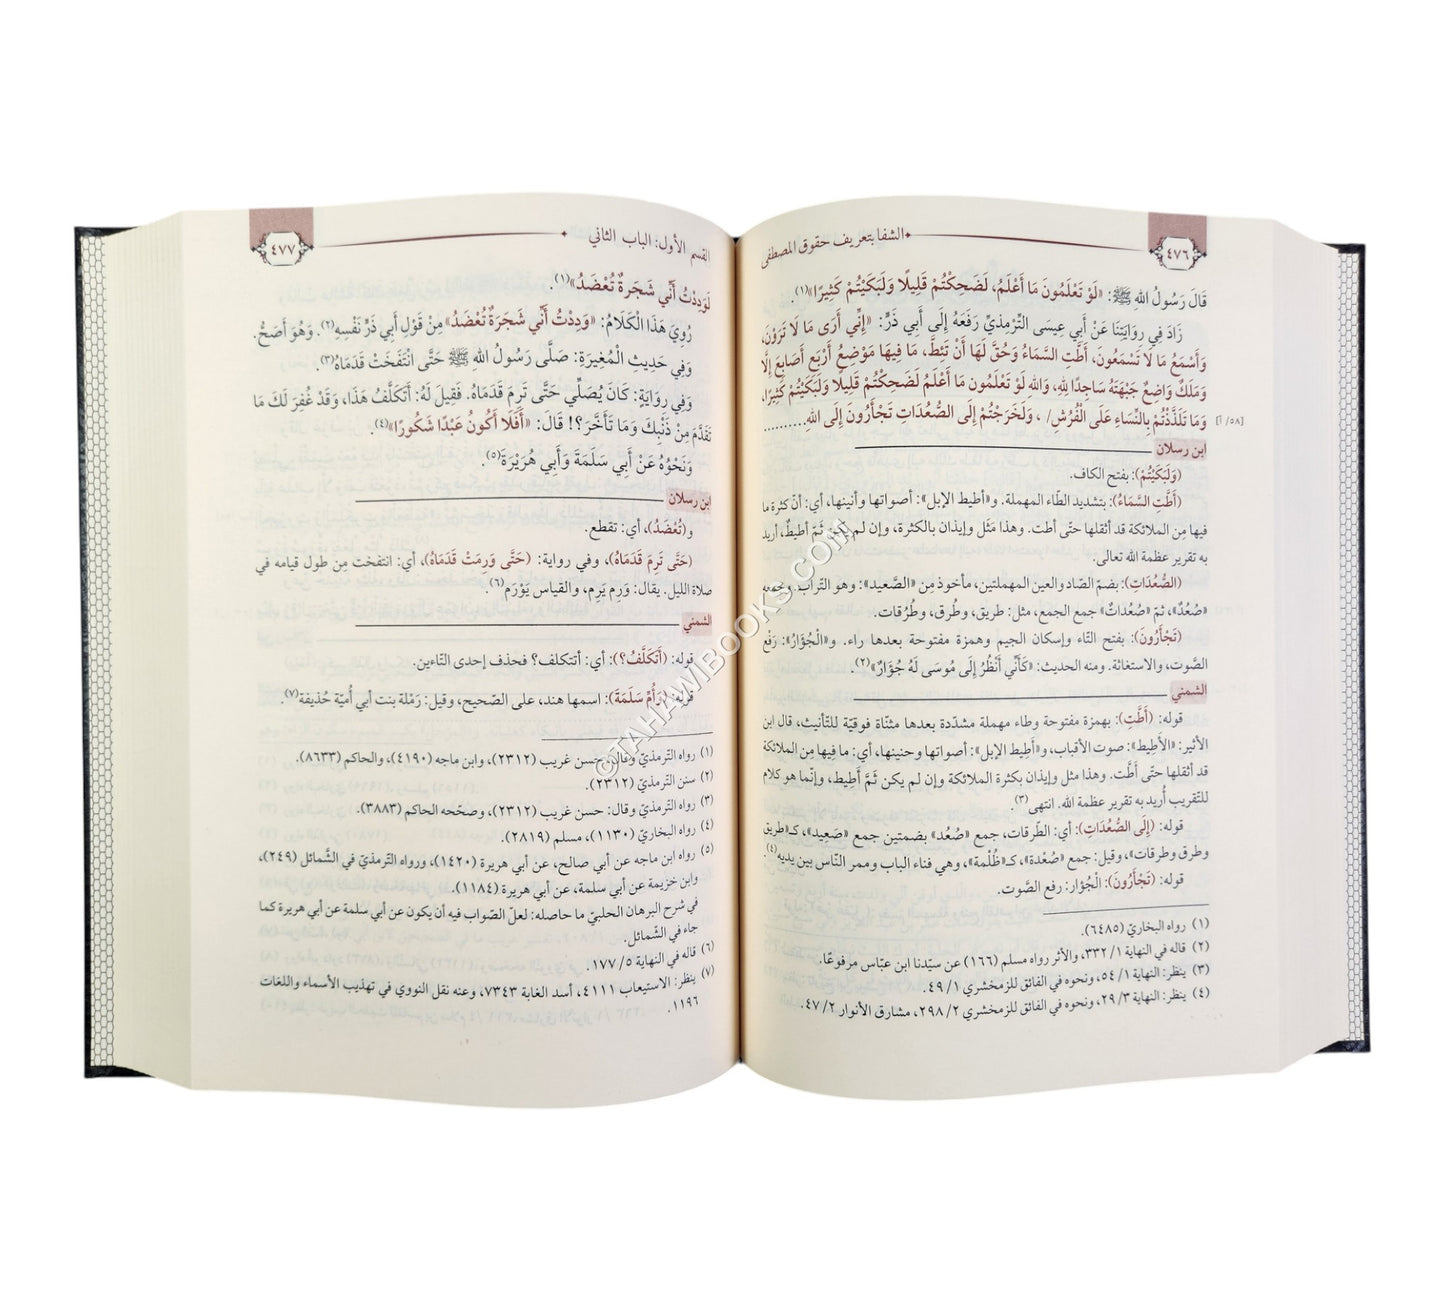 ٤٧٦
الشفا بتعريف حقوق المصطفى
قَالَ رَسُولُ اللهِ ﷺ: «لَوْ تَعْلَمُونَ مَا أَعْلَمُ، لَضَحِكْتُمْ قَلِيلًا وَلَبَكَيْتُمْ كَثِيرًا»(١).
زَادَ فِي رِوَايَتِنَا عَنْ أَبِي عِيسَى التِّرْمِذِيِّ رَفَعَهُ إِلَى أَبِي ذَرٍّ: «إِنِّي أَرَى مَا لَا تَرَوْنَ،
وَأَسْمَعُ مَا لَا تَسْمَعُونَ، أَطَّتِ السَّمَاءُ وَحُقَّ لَهَا أَنْ تَئِطَّ، مَا فِيهَا مَوْضِعُ أَرْبَعِ أَصَابِعَ إِلَّا
وَمَلَكٌ وَاضِعٌ جَبْهَتَهُ سَاجِدًا لِلهِ، وَاللهِ لَوْ تَعْلَمُونَ مَا أَعْلَمُ لَضَحِكْتُمْ قَلِيلًا وَلَبَكَيْتُمْ كَثِيرًا،
وَمَا تَلَذَّذْتُمْ بِالنِّسَاءِ عَلَى الْفُرُشِ/ ، وَلَخَرَجْتُمْ إِلَى الصُّعُدَاتِ تَجْأَرُونَ إِلَى اللهِ.......... [٥٨/ أ]
ابن رسلان
(وَلَبَكَيْتُمْ): بفتح الكاف.
(أَطَّتِ السَّمَاءُ): بتشديد الطّاء المهملة. و«أطيط الإبل»: أصواتها وأنينها، أي: أنّ كثرة ما
فيها مِن الملائكة قد أثقلها حتّى أطت. وهذا مَثَل وإيذان بالكثرة، وإن لم يكن ثَمّ أطيطٌ، أريد
به تقرير عظمة الله تعالى.
(الصُّعُدَاتِ): بضمّ الصّاد والعين المهملتين، مأخوذ مِن «الصَّعيد»: وهو التّراب. وجمعه
«صُعُدٌ»، ثمّ «صُعُدَاتٌ» جمع الجمع، مثل: طريق، وطُرق، وطُرُقات.
(تَجْأَرُونَ): بفتح التّاء وإسكان الجيم وهمزة مفتوحة بعدها راء. و«الْجُؤَارُ»: رَفْع
الصّوت، والاستغاثة. ومنه الحديث: «كَأَنِّي أَنْظُرُ إِلَى مُوسَى لَهُ جُؤَارٌ»(٢).
الشمني
قوله: (أَطَّتِ): بهمزة مفتوحة وطاء مهملة مشدّدة بعدها مثنّاة فوقيّة للتّأنيث، قال ابن
الأثير: «الأَطِيط»: صوت الأقياب، و«أَطِيط الإبل»: أصواتها وحنينها، أي: ما فِيها مِن الملائكة
قد أثقلها حتّى أَطَّت. وهذا مثل وإيذان بكثرة الملائكة وإن لم يكن ثَمَّ أَطِيط، وإنّما هو كلام
للتّقريب أُريد به تقرير عظمة الله. انتهى(٣).
قوله: (إِلَى الصُّعُدَاتِ): أي: الطّرقات، جمع «صُعُد» بضمتين جمع «صَعِيد»، كـ«طريق
وطرق وطرقات»، وقيل: جمع «صُعْدة»، كـ«ظُلْمة»، وهي فناء الباب وممر النّاس بين يديه(٤).
قوله: (تَجْأَرُونَ): الْجُؤار: رفع الصّوت.
(١) رواه البخاريّ (٦٤٨٥).
(٢) قاله في النهاية ١/ ٣٣٢، والأثر رواه مسلم (١٦٦) عن سيّدنا ابن عبّاس مرفوعًا.
(٣) ينظر: النهاية ١/ ٥٤، ونحوه في الفائق للزمخشري ١/ ٤٩.
(٤) ينظر: النهاية ٣/ ٢٩، ونحوه في الفائق للزمخشري ٢/ ٢٩٨، مشارق الأنوار ٢/ ٤٧.
القسم الأول: الباب الثاني
٤٧٧
لَوَدِدْتُ أَنِّي شَجَرَةٌ تُعْضَدُ»(١).
رُوِيَ هَذَا الْكَلَامُ: «وَدِدْتُ أَنِّي شَجَرَةٌ تُعْضَدُ» مِنْ قَوْلِ أَبِي ذَرٍّ نَفْسِهِ(٢). وَهُوَ أَصَحُّ.
وَفِي حَدِيثِ الْمُغِيرَةِ: صَلَّى رَسُولُ اللهِ ﷺ حَتَّى انْتَفَخَتْ قَدَمَاهُ(٣).
وَفِي رِوَايَةٍ: كَانَ يُصَلِّي حَتَّى تَرِمَ قَدَمَاهُ. فَقِيلَ لَهُ: أَتَكَلَّفُ هَذَا، وَقَدْ غُفِرَ لَكَ مَا
تَقَدَّمَ مِنْ ذَنْبِكَ وَمَا تَأَخَّرَ؟! قَالَ: «أَفَلَا أَكُونُ عَبْدًا شَكُورًا»(٤).
وَنَحْوُهُ عَنْ أَبِي سَلَمَةَ وَأَبِي هُرَيْرَةَ(٥).
ابن رسلان
و(تُعْضَدُ)، أي: تقطع.
(حَتَّى تَرِمَ قَدَمَاهُ)، وفي رواية: (حَتَّى وَرِمَتْ قَدَمَاهُ)، أي: انتفخت مِن طول قيامه في
صلاة الليل. يقال: وَرِم يَرِم، والقياس يَوْرَم(٦).
الشمني
قوله: (أَتَكَلَّفُ؟): أي: أتتكلف؟ فحذف إحدى التّاءين.
قوله: (وَأُمِّ سَلَمَةَ): اسمها هند، على الصّحيح، وقيل: رَمْلة بنت أبي أُميّة حُذيفة(٧).
(١) رواه التّرمذيّ وقال: حسن غريب (٢٣١٢)، وابن ماجه (٤١٩٠)، والحاكم (٨٦٣٣).
(٢) سنن التّرمذيّ (٢٣١٢).
(٣) رواه التّرمذيّ وقال: حسن غريب (٢٣١٢)، وصحّحه الحاكم (٣٨٨٣).
(٤) رواه البخاريّ (١١٣٠)، مسلم (٢٨١٩).
(٥) رواه ابن ماجه عن أبي صالح، عن أبي هريرة (١٤٢٠)، ورواه التّرمذيّ في الشّمائل (٢٤٩)،
وابن خزيمة عن أبي سلمة، عن أبي هريرة (١١٨٤).
في شرح البرهان الحلبيّ ما حاصله: لعلّ الصّواب فيه أن يكون عن أبي سلمة عن أبي هريرة كما
جاء في الشّمائل.
(٦) قاله في النهاية ٥/ ١٧٧.
(٧) ينظر: الاستيعاب ٤١١١، أسد الغابة ٧٣٤٣، وعنه نقل النووي في تهذيب الأسماء واللغات
١١٩٦.
©TAHAWIBOOKS.COM